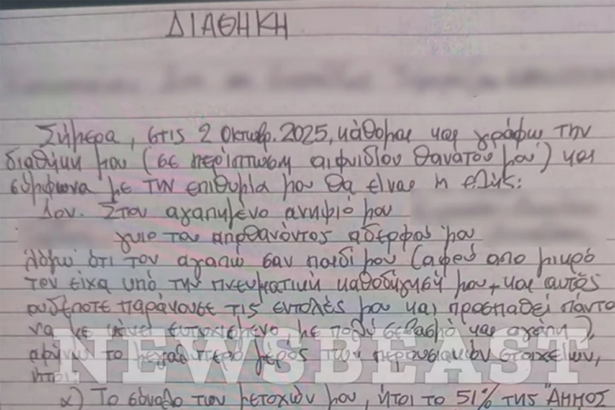 ΔΙΑΘΗΚΗ
Σήμερα, στις 2 Οκτωβρ. 2025, κάθομαι και γράφω την
διαθήκη μου (σε περίπτωση αιφνιδίου θανάτου μου) και
σύμφωνα με την επιθυμία μου θα είναι η εξής:
1ον. Στον αγαπημένο ανηψιό μου
γυιο του αποθανόντος αδερφού μου
λόγω ότι τον αγαπώ σαν παιδί μου (αφού απο μικρό
τον είχα υπό την πνευματική καθοδήγησή μου, και αυτός
ουδέποτε παράκουσε τις εντολές μου και προσπαθεί πάντα
να με κάνει ευτυχισμένο με πολύ σεβασμό και αγάπη),
αφήνω το μεγαλύτερο μέρος των περιουσιακών στοιχείων,
ήτοι:
α) Το σύνολο των μετοχών μου, ήτοι το 51% της
NEWSBEAST